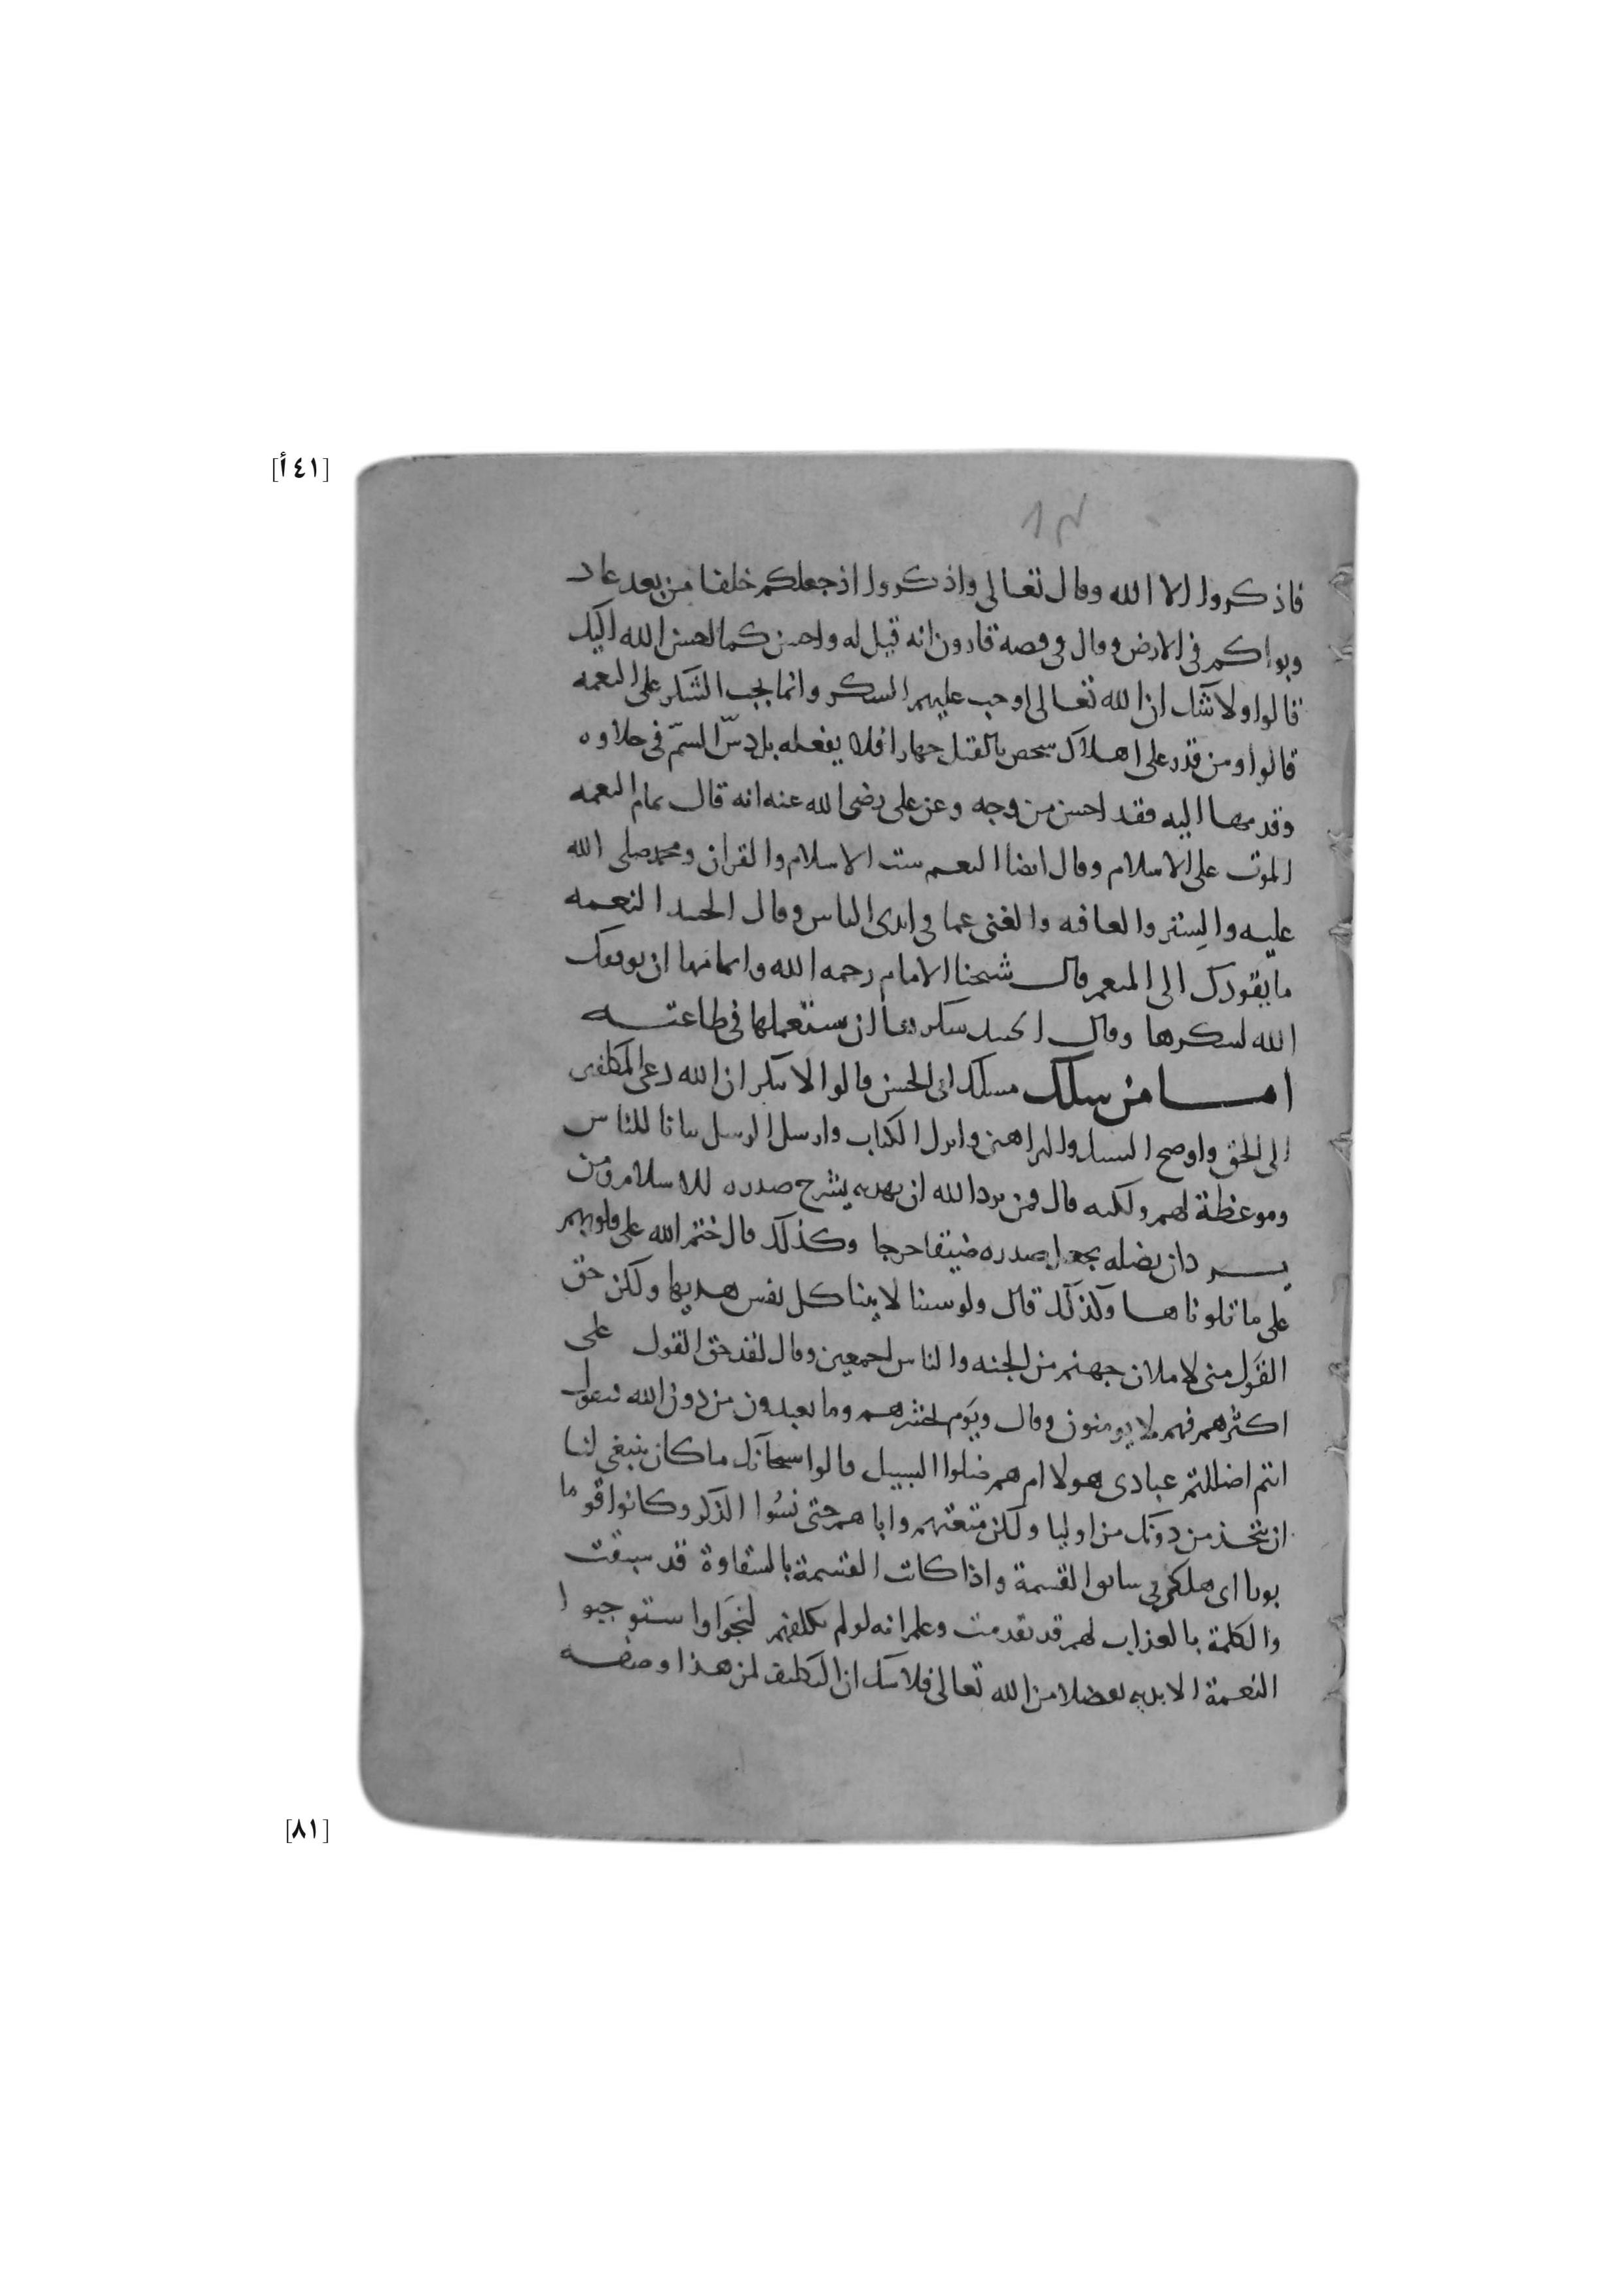 [٤١أ]
فاذكروا الا الله وقال تعالى واذكروا اذ جعلكم خلفا من بعد عاد
وبواكم فى الارض وقال فى قصة قارون انه قيل له واحسن كما احسن الله اليك
قالوا ولا شك ان الله تعالى اوجب عليهم الشكر وانما يجب الشكر على النعمه
قالوا ومن قدر على اهلاك شخص بالقتل جهارا فلا يفعله بل دسّ السمّ فى حلاوه
وقدمها اليه فقد احسن من وجه وعن على رضى الله عنه انه قال تمام النعمه
الموت على الاسلام وقال ايضا النعم ست الاسلام والقران ومحمد صلى الله
عليه والستر والعافيه والغنى عما فى ايدى الناس وقال الجنيد النعمه
ما يقودك الى المنعم قال شيخنا الامام رحمه الله واتمامها ان يوفقك
الله لشكرها وقال الجنيد شكرها ان يستعملها فى طاعته
اما من سلك مسلك ابى الحسن قالوا لا ننكر ان الله دعى المكلفين
الى الحق واوضح السبيل والبراهين وانزل الكتاب وارسل الرسل بيانا للناس
وموعظة لهم ولكنه قال فمن يرد الله ان يهديه يشرح صدره للاسلام ومن
يرد ان يضله يجعل صدره ضيقا حرجا وكذلك قال ختم الله على قلوبهم
على ما تلوناها وكذلك قال ولو شينا لاتينا كل نفس هديها ولكن حق
القول منى لاملان جهنم من الجنه والناس اجمعين وقال لقد حق القول على
اكثرهم فهم لا يومنون وقال ويوم نحشرهم وما يعبدون من دون الله فيقول
انتم اضللتم عبادى هولا ام هم ضلوا السبيل قالوا سبحانك ما كان ينبغى لنا
ان نتخذ من دونك من اوليا ولكن متعتهم واباهم حتى نسُوا الذكر وكانوا قوما
بورا اى هلكى فى سابق القسمة واذا كانت القسمة بالشقاوة قد سبقت
والكلمة بالعذاب لهم قد تقدمت وعلم انه لو لم يكلفهم لنجَوا واستوجبوا
النعمة الابديه تفضلا من الله تعالى فلا شك ان التكليف لمن هذا وصفه
[٨١]